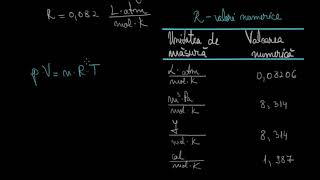 R = 0,082 L·atm / mol·K
p·V = n·R·T
R - valori numerice
Unitatea de măsură | Valoarea numerică
L·atm / mol·K | 0,08206
m³·Pa / mol·K | 8,314
J / mol·K | 8,314
cal / mol·K | 1,987